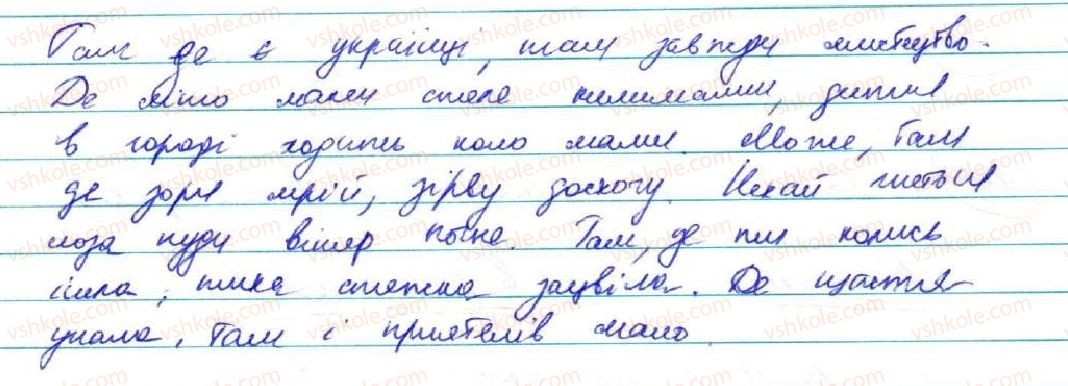 Там де є українці, там завжди мистецтво.
Де літо маки стеле килимами, дитям
в городі ходить коло мами. Може, там
де зоря мрій, зірву досхочу. Нехай гнеться
лоза куди вітер погне. Там, де ти колись
ішла, тиха стежка зацвіла. Де щастя
упало, там і приятелів мало.